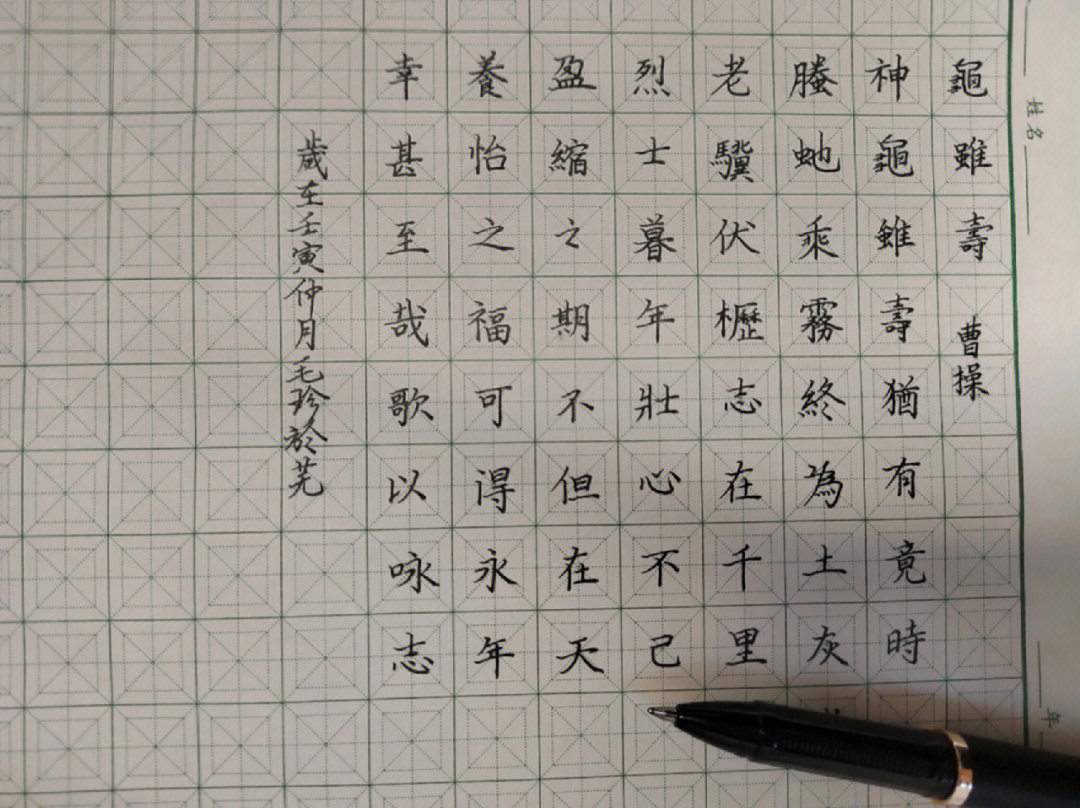 龜雖壽 曹操
神龜雖壽猶有竟時
騰虵乘霧終為土灰
老驥伏櫪志在千里
烈士暮年壯心不已
盈縮之期不但在天
養怡之福可得永年
幸甚至哉歌以咏志
歲在壬寅仲月毛珍於芜
姓名
年